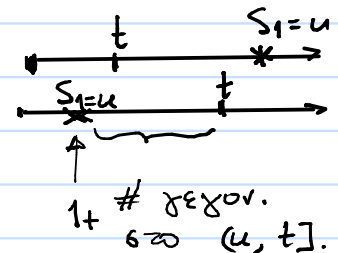 t S₁=u
S₁=u t
1+ # γεγον.
στο (u, t].